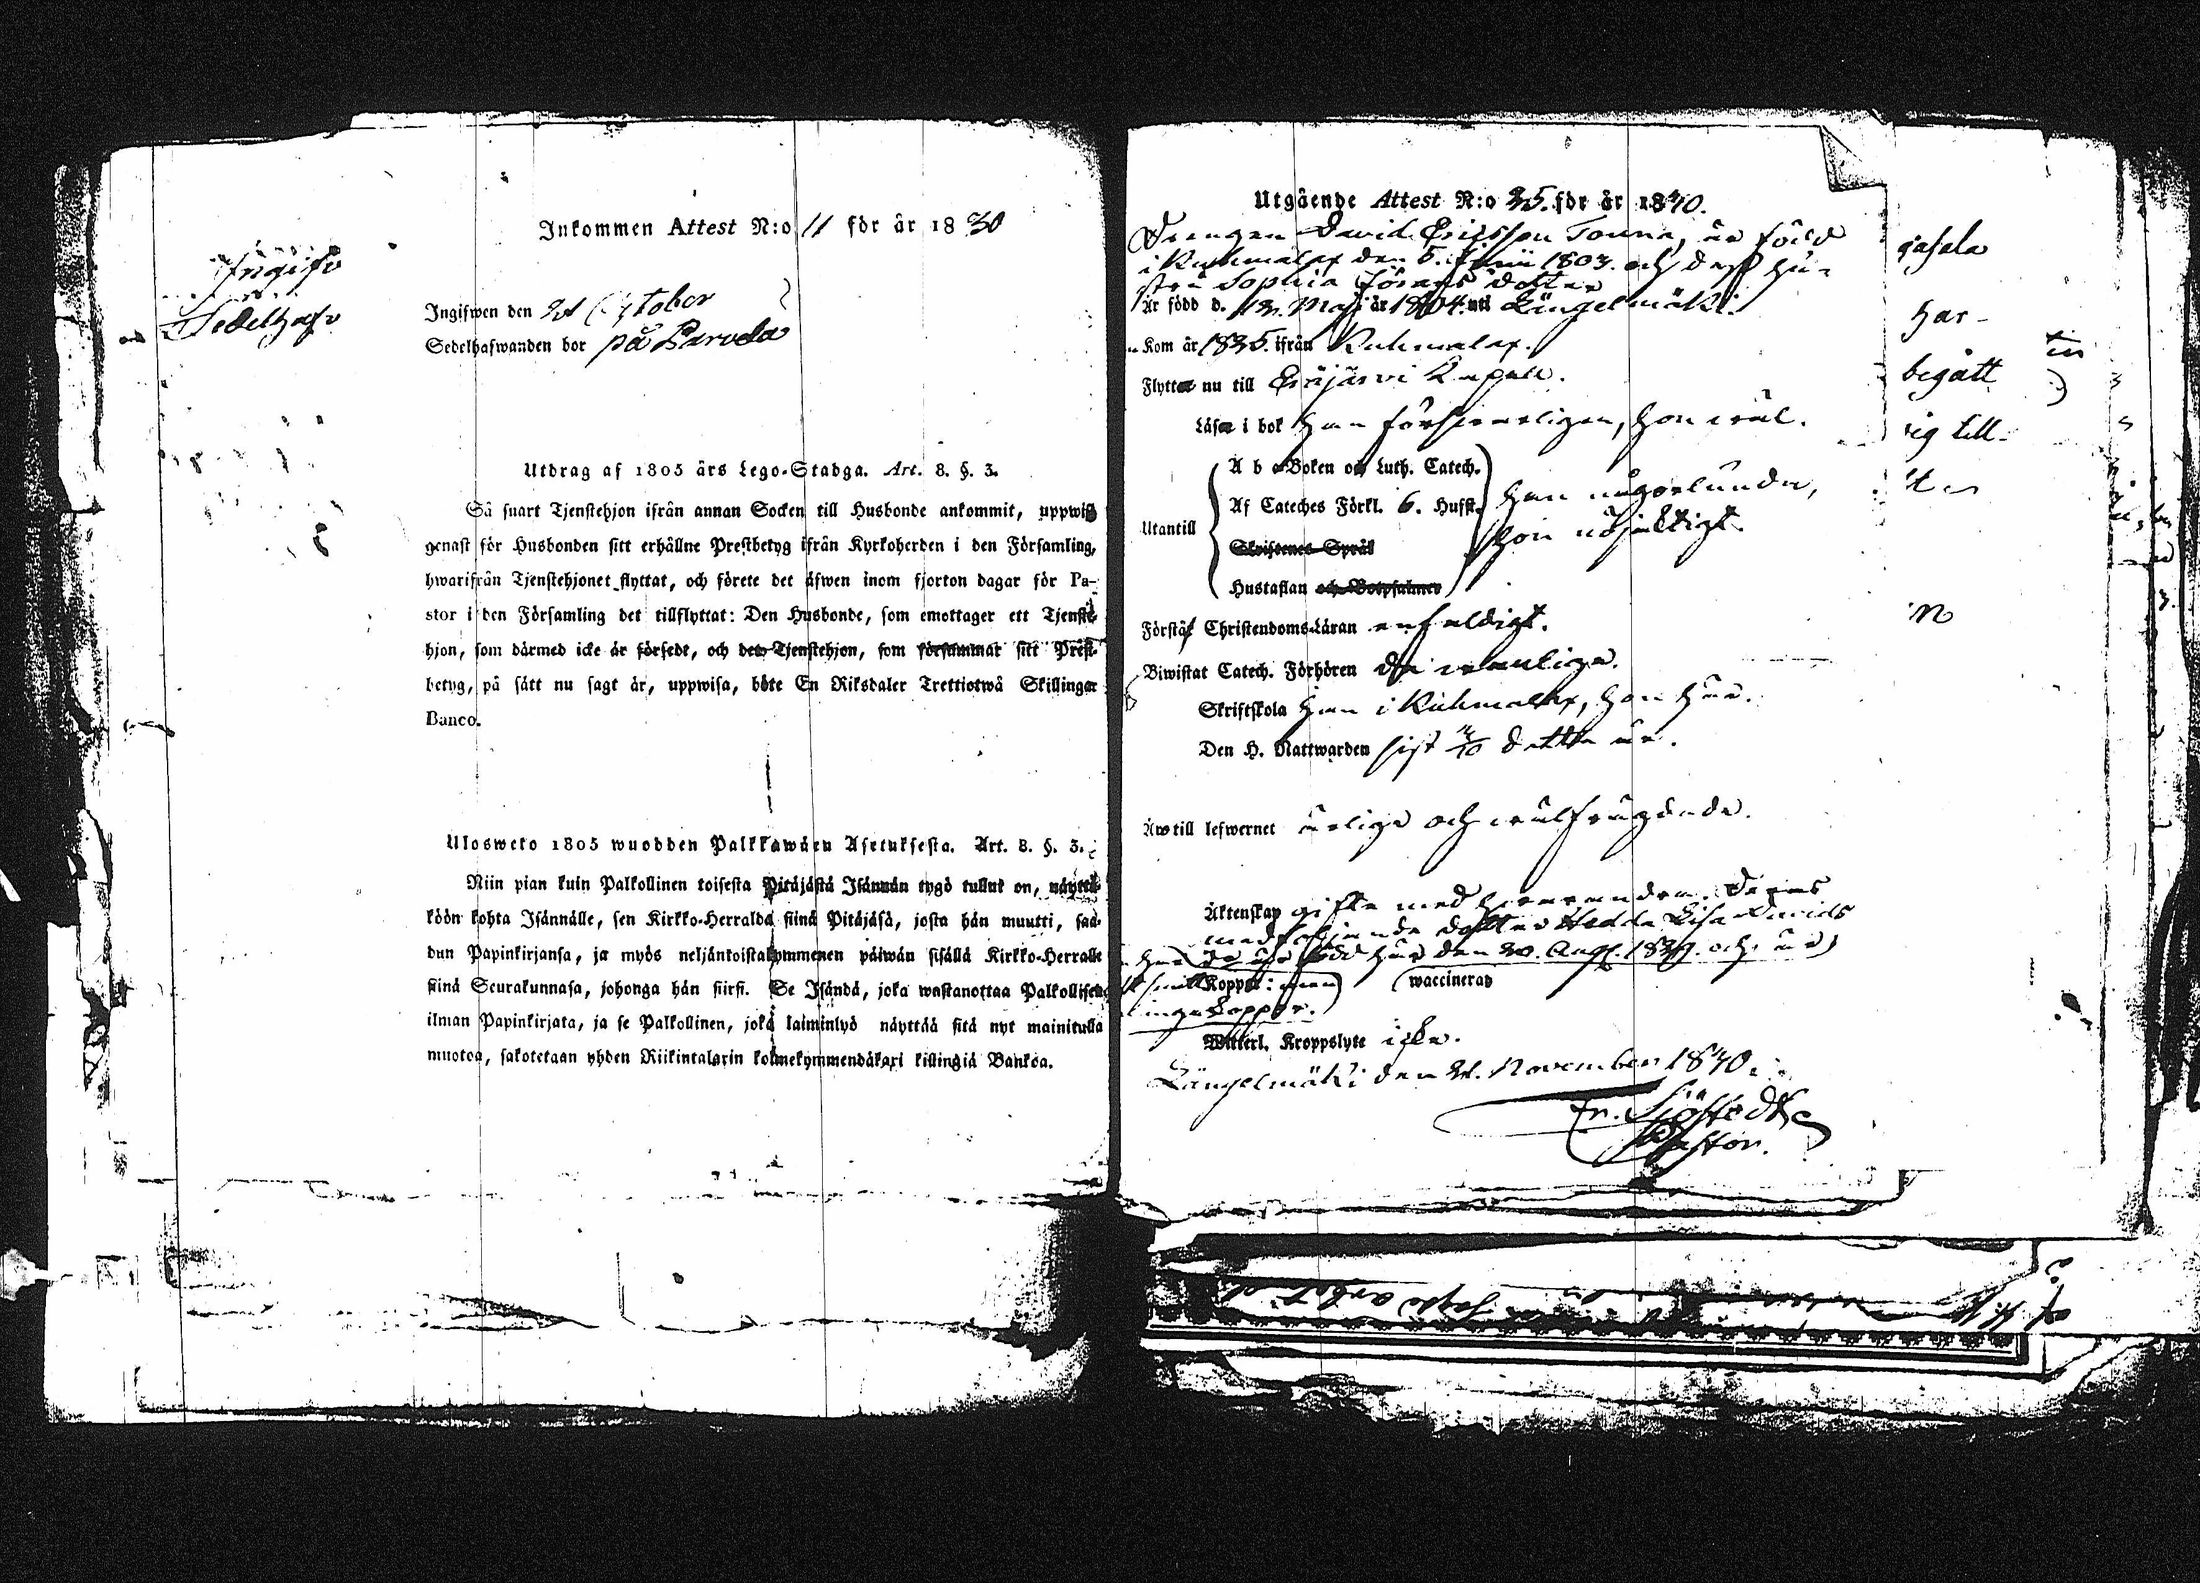 Ingifv
Sedelhafv
Inkommen Attest N:o 11 för år 1830
Ingifwen den October
Sedelhafwanden bor på Parvela
Utdrag af 1805 års Lego-Stadga. Art. 8. §. 3.
Så snart Tjenstehjon ifrån annan Socken till Husbonde ankommit, uppwise
genast för Husbonden sitt erhållne Prestbetyg ifrån Kyrkoherden i den Församling,
hwarifrån Tjenstehjonet flyttat, och förete det äfwen inom fjorton dagar för Pa-
stor i den Församling det tillflyttat: Den Husbonde, som emottager ett Tjenste-
hjon, som därmed icke är försedt, och det Tjenstehjon, som försummar sitt Prest-
betyg, på sätt nu sagt är, uppwisa, böte En Riksdaler Trettiotwå Skillingar
Banco.
Ulosweto 1805 wuodden Palkkawäen Asetuksesta. Art. 8. §. 3.
Niin pian kuin Palkollinen toisesta Pitäjästä Isännän tygö tullut on, näyttä-
köön kohta Isännälle, sen Kirkko-Herralda siinä Pitäjäsä, josta hän muutti, saa-
dun Papinkirjansa, ja myös neljänkoistakymmenen päiwän sisällä Kirkko-Herralle
siinä Seurakunnasa, johonga hän siirsi. Se Isändä, joka wastanottaa Palkollisen
ilman Papinkirjata, ja se Palkollinen, joka laiminlyö näyttää sitä nyt mainitulla
muotoa, sakotetaan yhden Riikintalarin kolmekymmendäkaxi killingiä Bankoa.
Utgående Attest N:o 35. för år 1840.
Drengen David Ericsson Tonna, är född
i Kuhmalax den 5. Junii 1803. och dess hu-
stru Sophia Jörans dotter
Är född d. 13. Maji år 1804. uti Längelmäki.
Kom år 1835. ifrån Kuhmalax.
Flytta nu till Eräjärvi Kapell.
Läsa i bok han försvarligen, hon wäl.
A b c-Boken och Luth. Catech.
Af Cateches Förkl. 6. Hufst.
Utantill
Skriftenes Språk
Hustaflan och Botpsalmer
han någorlunda,
hon nöjaktigt.
Förstå Christendoms-Läran enfaldigt.
Biwistat Catech. Förhören de wanliga.
Skriftskola han i Kuhmalax, hon här.
Den H. Nattwarden sist detta år.
Äro till lefwernet ärliga och wälfrägdade.
Äktenskap gifta med hwarandra. Deras
medföljande dotter Hedda Lisa Davids
född här den 20. Aug. 1839. och är
Koppor: men waccinerad
inga koppor.
Witterl. Kroppslyte icke.
Längelmäki den 21. November 1840.
Fr. Sjöstedt
Pastor.
har
begått
sig till